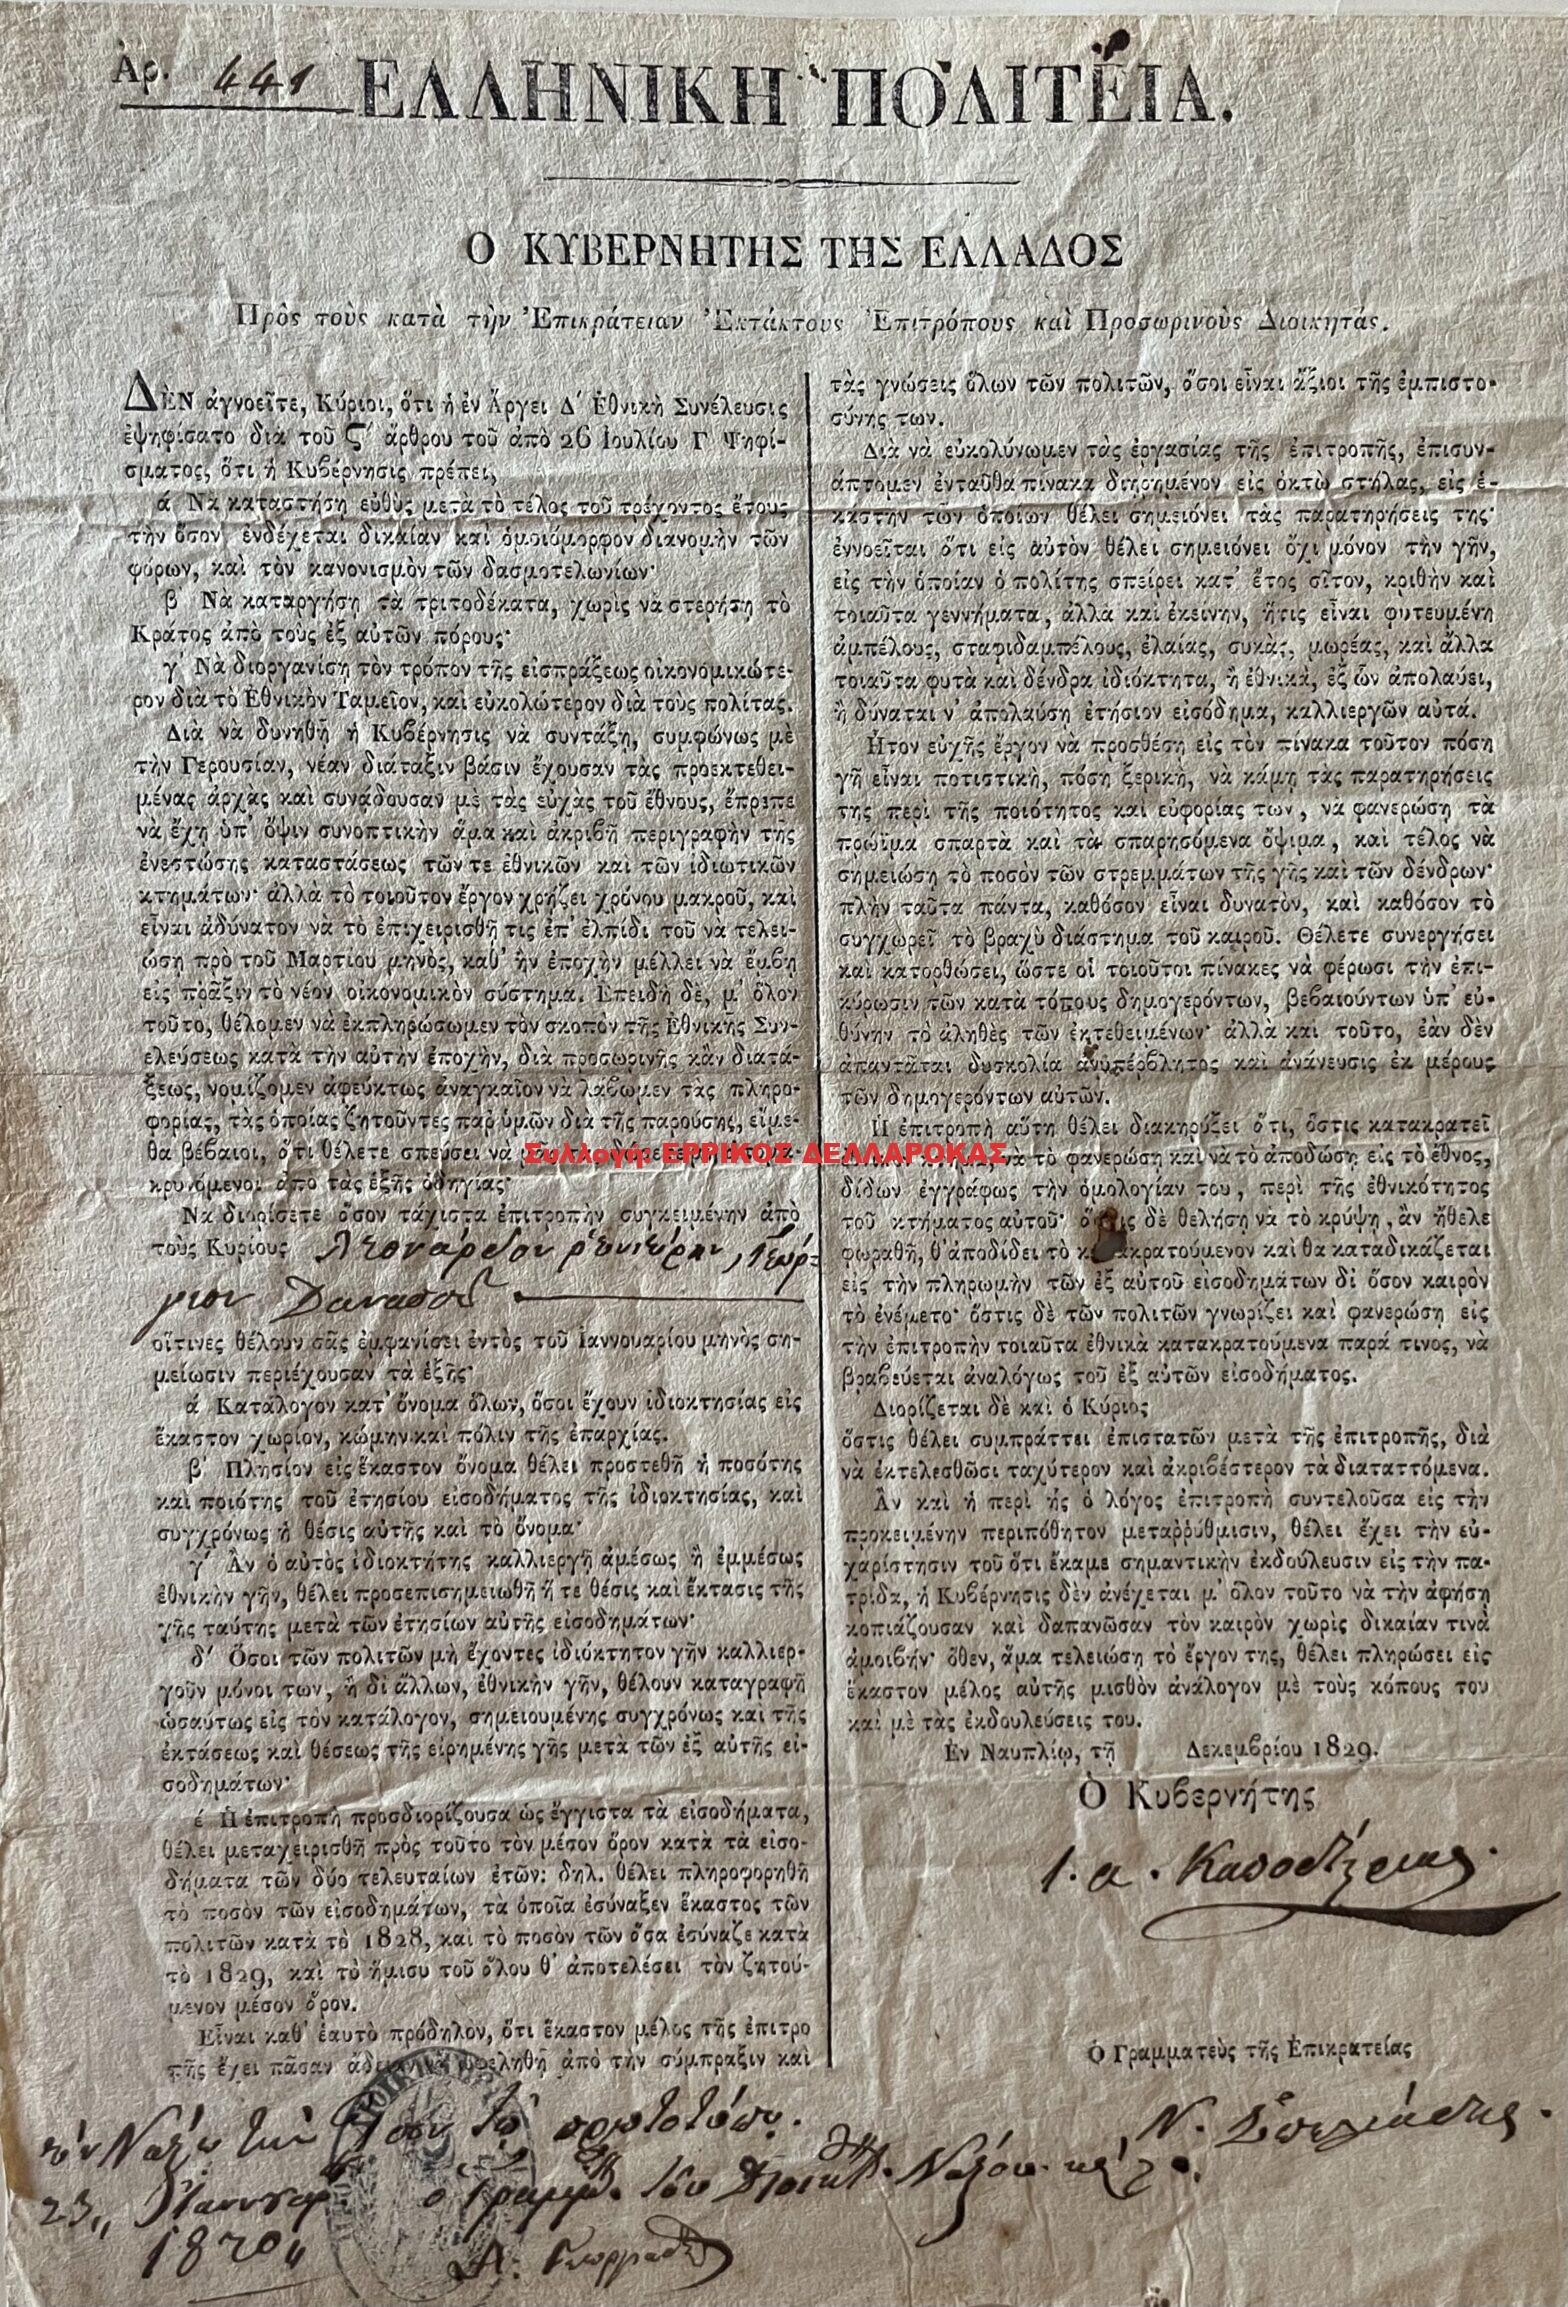 Ἀρ. 441 ΕΛΛΗΝΙΚΗ ΠΟΛΙΤΕΙΑ.
Ο ΚΥΒΕΡΝΗΤΗΣ ΤΗΣ ΕΛΛΑΔΟΣ
Πρὸς τοὺς κατὰ τὴν Ἐπικράτειαν Ἐκτάκτους Ἐπιτρόπους καὶ Προσωρινοὺς Διοικητάς.
ΔΕΝ ἀγνοεῖτε, Κύριοι, ὅτι ἡ ἐν Ἄργει Δ΄ Ἐθνικὴ Συνέλευσις
ἐψηφίσατο διὰ τοῦ Ϛ΄ ἄρθρου τοῦ ἀπὸ 26 Ἰουλίου Γ΄ Ψηφί-
σματος, ὅτι ἡ Κυβέρνησις πρέπει,
ά Νὰ καταστήσῃ εὐθὺς μετὰ τὸ τέλος τοῦ τρέχοντος ἔτους
τὴν ὅσον ἐνδέχεται δικαίαν καὶ ὁμοιόμορφον διανομὴν τῶν
φόρων, καὶ τὸν κανονισμὸν τῶν δασμοτελωνίων·
β΄ Νὰ καταργήσῃ τὰ τριτοδέκατα, χωρὶς νὰ στερήσῃ τὸ
Κράτος ἀπὸ τοὺς ἐξ αὐτῶν πόρους·
γ΄ Νὰ διοργανίσῃ τὸν τρόπον τῆς εἰσπράξεως οἰκονομικώτε-
ρον διὰ τὸ Ἐθνικὸν Ταμεῖον, καὶ εὐκολώτερον διὰ τοὺς πολίτας.
Διὰ νὰ δυνηθῇ ἡ Κυβέρνησις νὰ συντάξῃ, συμφώνως μὲ
τὴν Γερουσίαν, νέαν διάταξιν βάσιν ἔχουσαν τὰς προεκτεθει-
μένας ἀρχὰς καὶ συνάδουσαν μὲ τὰς εὐχὰς τοῦ ἔθνους, ἔπρεπε
νὰ ἔχῃ ὑπ' ὄψιν συνοπτικὴν ἅμα καὶ ἀκριβῆ περιγραφὴν τῆς
ἐνεστώσης καταστάσεως τῶν τε ἐθνικῶν καὶ τῶν ἰδιωτικῶν
κτημάτων· ἀλλὰ τὸ τοιοῦτον ἔργον χρῄζει χρόνου μακροῦ, καὶ
εἶναι ἀδύνατον νὰ τὸ ἐπιχειρισθῇ τις ἐπ' ἐλπίδι τοῦ νὰ τελει-
ώσῃ πρὸ τοῦ Μαρτίου μηνὸς, καθ' ἣν ἐποχὴν μέλλει νὰ ἔμβῃ
εἰς πρᾶξιν τὸ νέον οἰκονομικὸν σύστημα. Ἐπειδὴ δὲ, μ' ὅλον
τοῦτο, θέλομεν νὰ ἐκπληρώσωμεν τὸν σκοπὸν τῆς Ἐθνικῆς Συν-
ελεύσεως κατὰ τὴν αὐτὴν ἐποχὴν, διὰ προσωρινῆς κἂν διατά-
ξεως, νομίζομεν ἀφεύκτως ἀναγκαῖον νὰ λάβωμεν τὰς πληρο-
φορίας, τὰς ὁποίας ζητοῦντες παρ' ὑμῶν διὰ τῆς παρούσης, εἴμε-
θα βέβαιοι, ὅτι θέλετε σπεύσει νὰ
Συλλογή: ΕΡΡΙΚΟΣ ΔΕΛΛΑΡΟΚΑΣ
κρυνόμενοι ἀπὸ τὰς ἑξῆς ὁδηγίας·
Νὰ διορίσετε ὅσον τάχιστα ἐπιτροπὴν συγκειμένην ἀπὸ
τοὺς Κυρίους Λεονάρδον Ῥενιέρην, Γεώρ-
γιον Δαμασ
οἵτινες θέλουν σᾶς ἐμφανίσει ἐντὸς τοῦ Ἰαννουαρίου μηνὸς ση-
μείωσιν περιέχουσαν τὰ ἑξῆς·
ά Κατάλογον κατ' ὄνομα ὅλων, ὅσοι ἔχουν ἰδιοκτησίας εἰς
ἕκαστον χωρίον, κώμην καὶ πόλιν τῆς ἐπαρχίας.
β΄ Πλησίον εἰς ἕκαστον ὄνομα θέλει προστεθῆ ἡ ποσότης
καὶ ποιότης τοῦ ἐτησίου εἰσοδήματος τῆς ἰδιοκτησίας, καὶ
συγχρόνως ἡ θέσις αὐτῆς καὶ τὸ ὄνομα·
γ΄ Ἂν ὁ αὐτὸς ἰδιοκτήτης καλλιεργῇ ἀμέσως ἢ ἐμμέσως
ἐθνικὴν γῆν, θέλει προσεπισημειωθῆ ἥ τε θέσις καὶ ἔκτασις τῆς
γῆς ταύτης μετὰ τῶν ἐτησίων αὐτῆς εἰσοδημάτων·
δ΄ Ὅσοι τῶν πολιτῶν μὴ ἔχοντες ἰδιόκτητον γῆν καλλιερ-
γοῦν μόνοι των, ἢ δι' ἄλλων, ἐθνικὴν γῆν, θέλουν καταγραφῆ
ὡσαύτως εἰς τὸν κατάλογον, σημειουμένης συγχρόνως καὶ τῆς
ἐκτάσεως καὶ θέσεως τῆς εἰρημένης γῆς μετὰ τῶν ἐξ αὐτῆς εἰ-
σοδημάτων·
έ Ἡ ἐπιτροπὴ προσδιορίζουσα ὡς ἔγγιστα τὰ εἰσοδήματα,
θέλει μεταχειρισθῆ πρὸς τοῦτο τὸν μέσον ὅρον κατὰ τὰ εἰσο-
δήματα τῶν δύο τελευταίων ἐτῶν: δηλ. θέλει πληροφορηθῆ
τὸ ποσὸν τῶν εἰσοδημάτων, τὰ ὁποῖα ἐσύναξεν ἕκαστος τῶν
πολιτῶν κατὰ τὸ 1828, καὶ τὸ ποσὸν τῶν ὅσα ἐσύναξε κατὰ
τὸ 1829, καὶ τὸ ἥμισυ τοῦ ὅλου θ' ἀποτελέσει τὸν ζητού-
μενον μέσον ὅρον.
Εἶναι καθ' ἑαυτὸ πρόδηλον, ὅτι ἕκαστον μέλος τῆς ἐπιτρο
πῆς ἔχει πᾶσαν ἄδειαν νὰ ὠφεληθῇ ἀπὸ τὴν σύμπραξιν καὶ
τὰς γνώσεις ὅλων τῶν πολιτῶν, ὅσοι εἶναι ἄξιοι τῆς ἐμπιστο-
σύνης των.
Διὰ νὰ εὐκολύνωμεν τὰς ἐργασίας τῆς ἐπιτροπῆς, ἐπισυν-
άπτομεν ἐνταῦθα πίνακα διῃρημένον εἰς ὀκτὼ στήλας, εἰς ἑ-
κάστην τῶν ὁποίων θέλει σημειόνει τὰς παρατηρήσεις της·
ἐννοεῖται ὅτι εἰς αὐτὸν θέλει σημειόνει ὄχι μόνον τὴν γῆν,
εἰς τὴν ὁποίαν ὁ πολίτης σπείρει κατ' ἔτος σῖτον, κριθὴν καὶ
τοιαῦτα γεννήματα, ἀλλὰ καὶ ἐκείνην, ἥτις εἶναι φυτευμένη
ἀμπέλους, σταφιδαμπέλους, ἐλαίας, συκὰς, μωρέας, καὶ ἄλλα
τοιαῦτα φυτὰ καὶ δένδρα ἰδιόκτητα, ἢ ἐθνικὰ, ἐξ ὧν ἀπολαύει,
ἢ δύναται ν' ἀπολαύσῃ ἐτήσιον εἰσόδημα, καλλιεργῶν αὐτά.
Ἦτον εὐχῆς ἔργον νὰ προσθέσῃ εἰς τὸν πίνακα τοῦτον πόση
γῆ εἶναι ποτιστικὴ, πόση ξερικὴ, νὰ κάμῃ τὰς παρατηρήσεις
της περὶ τῆς ποιότητος καὶ εὐφορίας των, νὰ φανερώσῃ τὰ
πρώϊμα σπαρτὰ καὶ τὰ σπαρησόμενα ὄψιμα, καὶ τέλος νὰ
σημειώσῃ τὸ ποσὸν τῶν στρεμμάτων τῆς γῆς καὶ τῶν δένδρων·
πλὴν ταῦτα πάντα, καθόσον εἶναι δυνατὸν, καὶ καθόσον τὸ
συγχωρεῖ τὸ βραχὺ διάστημα τοῦ καιροῦ. Θέλετε συνεργήσει
καὶ κατορθώσει, ὥστε οἱ τοιοῦτοι πίνακες νὰ φέρωσι τὴν ἐπι-
κύρωσιν τῶν κατὰ τόπους δημογερόντων, βεβαιούντων ὑπ' εὐ-
θύνην τὸ ἀληθὲς τῶν ἐκτεθειμένων· ἀλλὰ καὶ τοῦτο, ἐὰν δὲν
ἀπαντᾶται δυσκολία ἀνυπέρβλητος καὶ ἀνάνευσις ἐκ μέρους
τῶν δημογερόντων αὐτῶν.
Ἡ ἐπιτροπὴ αὕτη θέλει διακηρύξει ὅτι, ὅστις κατακρατεῖ
νὰ τὸ φανερώσῃ καὶ νὰ τὸ ἀποδώσῃ εἰς τὸ ἔθνος,
δίδων ἐγγράφως τὴν ὁμολογίαν του, περὶ τῆς ἐθνικότητος
τοῦ κτήματος αὐτοῦ· ὅστις δὲ θελήσῃ νὰ τὸ κρύψῃ, ἂν ἤθελε
φωραθῆ, θ' ἀποδίδει τὸ κατακρατούμενον καὶ θὰ καταδικάζεται
εἰς τὴν πληρωμὴν τῶν ἐξ αὐτοῦ εἰσοδημάτων δι' ὅσον καιρὸν
τὸ ἐνέμετο· ὅστις δὲ τῶν πολιτῶν γνωρίζει καὶ φανερώσῃ εἰς
τὴν ἐπιτροπὴν τοιαῦτα ἐθνικὰ κατακρατούμενα παρά τινος, νὰ
βραβεύεται ἀναλόγως τοῦ ἐξ αὐτῶν εἰσοδήματος.
Διορίζεται δὲ καὶ ὁ Κύριος
ὅστις θέλει συμπράττει ἐπιστατῶν μετὰ τῆς ἐπιτροπῆς, διὰ
νὰ ἐκτελεσθῶσι ταχύτερον καὶ ἀκριβέστερον τὰ διαταττόμενα.
Ἂν καὶ ἡ περὶ ἧς ὁ λόγος ἐπιτροπὴ συντελοῦσα εἰς τὴν
προκειμένην περιπόθητον μεταῤῥύθμισιν, θέλει ἔχει τὴν εὐ-
χαρίστησιν τοῦ ὅτι ἔκαμε σημαντικὴν ἐκδούλευσιν εἰς τὴν πα-
τρίδα, ἡ Κυβέρνησις δὲν ἀνέχεται μ' ὅλον τοῦτο νὰ τὴν ἀφήσῃ
κοπιάζουσαν καὶ δαπανῶσαν τὸν καιρὸν χωρὶς δικαίαν τινὰ
ἀμοιβήν· ὅθεν, ἅμα τελειώσῃ τὸ ἔργον της, θέλει πληρώσει εἰς
ἕκαστον μέλος αὐτῆς μισθὸν ἀνάλογον μὲ τοὺς κόπους του
καὶ μὲ τὰς ἐκδουλεύσεις του.
Ἐν Ναυπλίῳ, τῇ Δεκεμβρίου 1829.
Ὁ Κυβερνήτης
Ι. Α. Καποδίστριας.
Ὁ Γραμματεὺς τῆς Ἐπικρατείας
Ν. Σπηλιάδης.
Ἴσον τῷ πρωτοτύπῳ.
ἐν Νάξῳ τὴν
23 Ἰαννουαρ.
1830
ὁ Γραμμ. τοῦ Διοικητ. Νάξου κλ
Α. Γεωργιάδης